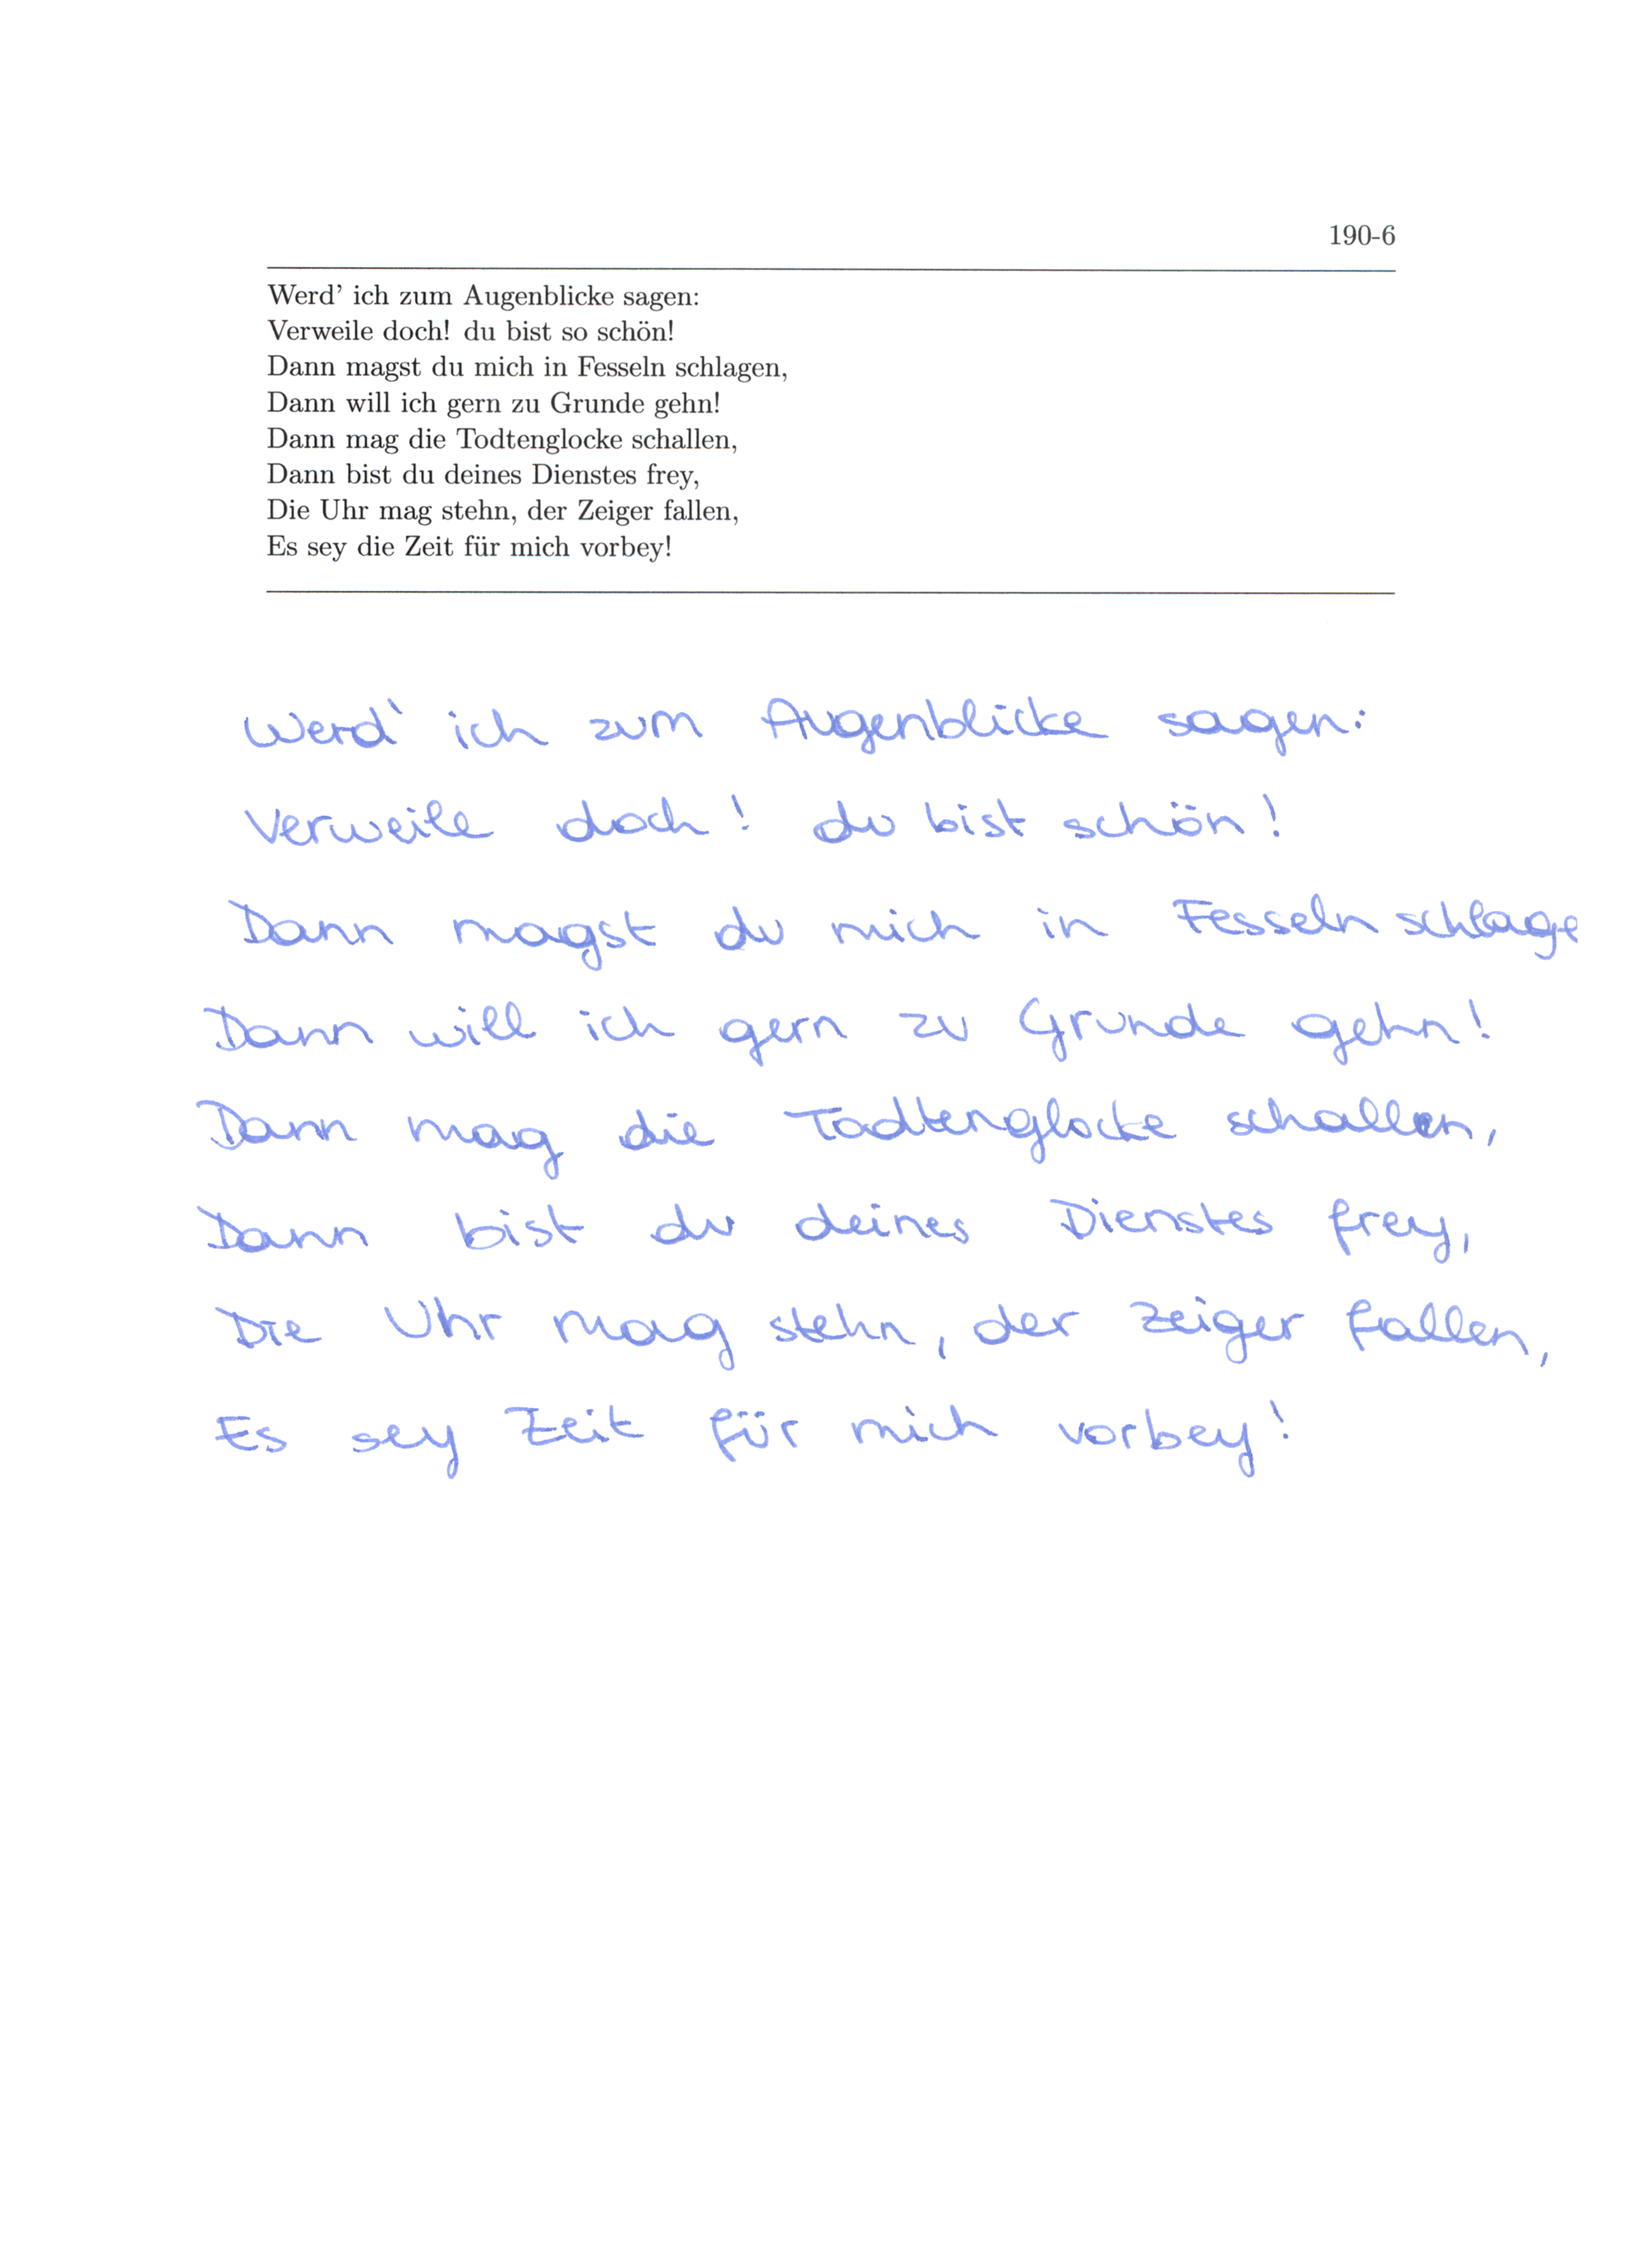 190-6
Werd' ich zum Augenblicke sagen:
Verweile doch! du bist so schön!
Dann magst du mich in Fesseln schlagen,
Dann will ich gern zu Grunde gehn!
Dann mag die Todtenglocke schallen,
Dann bist du deines Dienstes frey,
Die Uhr mag stehn, der Zeiger fallen,
Es sey die Zeit für mich vorbey!
Werd' ich zum Augenblicke sagen:
Verweile doch! du bist schön!
Dann magst du mich in Fesseln schlage
Dann will ich gern zu Grunde gehn!
Dann mag die Todtenglocke schallen,
Dann bist du deines Dienstes frey,
Die Uhr mag stehn, der Zeiger fallen,
Es sey Zeit für mich vorbey!